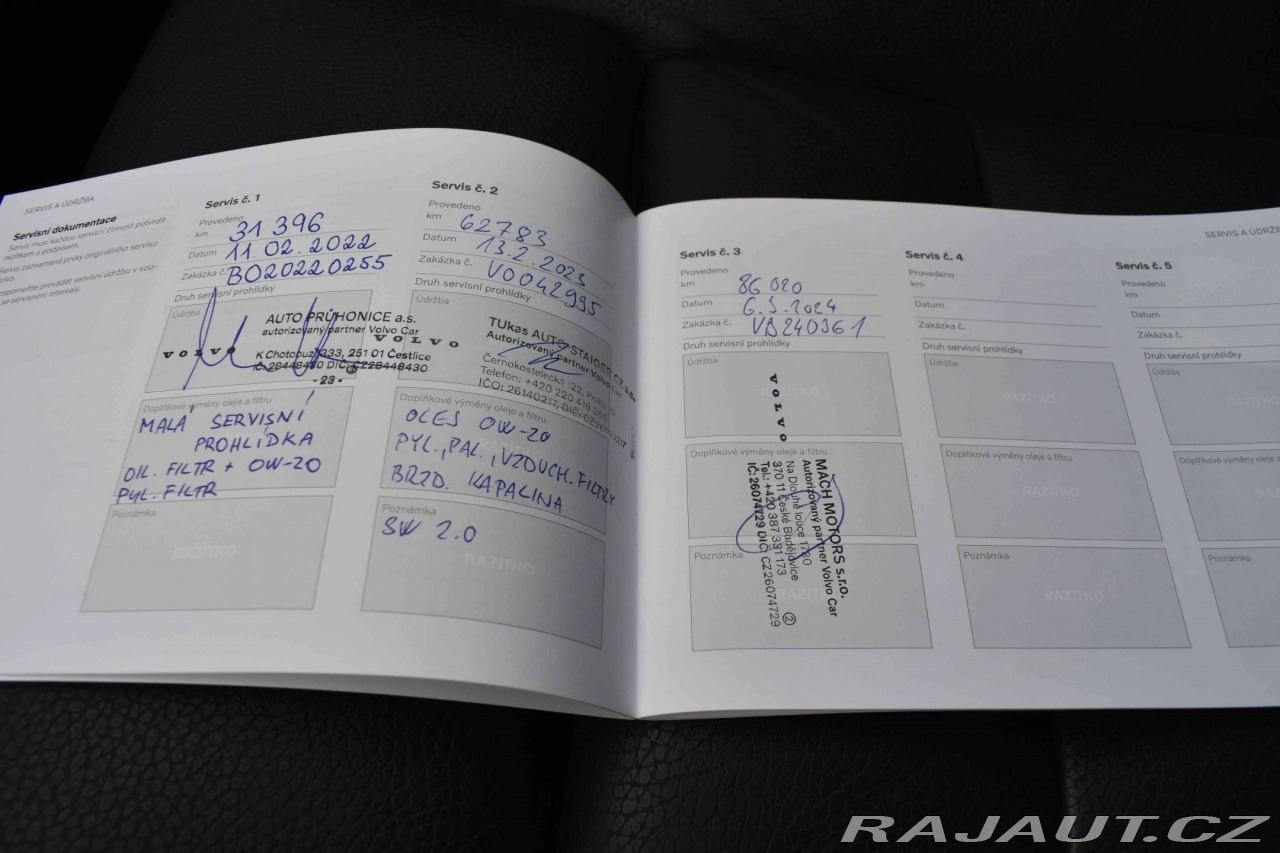 SERVIS A ÚDRŽBA
Servisní dokumentace
Servis musí každou servisní činnost potvrdit
razítkem a podpisem.
Servis zaznamená prvky originálního servisu
olvo.
zapomeňte provádět servisní údržbu v sou-
se servisními intervaly.
Servis č. 1
Provedeno
km 31 396
Datum 11.02.2022
Zakázka č. BO20220255
Druh servisní prohlídky
Údržba
AUTO PRŮHONICE a.s.
autorizovaný partner Volvo Car
VOLVO
K Chotobuzi 333, 251 01 Čestlice
IČ: 28448430 DIČ: CZ28448430
- 23 -
Doplňkové výměny oleje a filtru
MALÁ SERVISNÍ
PROHLÍDKA
OIL. FILTR + OW-20
PYL. FILTR
Poznámka
RAZÍTKO
Servis č. 2
Provedeno
km 62783
Datum 13.2.2023
Zakázka č. VO042995
Druh servisní prohlídky
Údržba
VOLVO
TUkas AUTO STAIGER CZ a.s.
Autorizovaný partner Volvo Car
Černokostelecká 122, Praha 10
Telefon: +420 220 416
IČO: 26140217, DIČ: CZ26140217
Doplňkové výměny oleje a filtru
OLEJ OW-20
PYL., PAL., VZDUCH. FILTRY
BRZD. KAPALINA
Poznámka
SW 2.0
RAZÍTKO
SERVIS A ÚDRŽB
Servis č. 3
Provedeno
km 86 020
Datum 6.3.2024
Zakázka č. VB240361
Druh servisní prohlídky
Údržba
VOLVO
Doplňkové výměny oleje a filtru
MACH MOTORS s.r.o.
Autorizovaný partner Volvo Car
Na Dlouhé louce 1730
370 11 České Budějovice
Tel.: +420 387 331 173
IČ: 26074729 DIČ: CZ26074729
2
Poznámka
RAZÍTKO
Servis č. 4
Provedeno
km
Datum
Zakázka č.
Druh servisní prohlídky
Údržba
RAZÍTKO
Doplňkové výměny oleje a filtru
RAZÍTKO
Poznámka
RAZÍTKO
Servis č. 5
Provedeno
km
Datum
Zakázka č.
Druh servisní prohlídky
Údržba
Doplňkové výměny o
Poznámka
RAJAUT.CZ